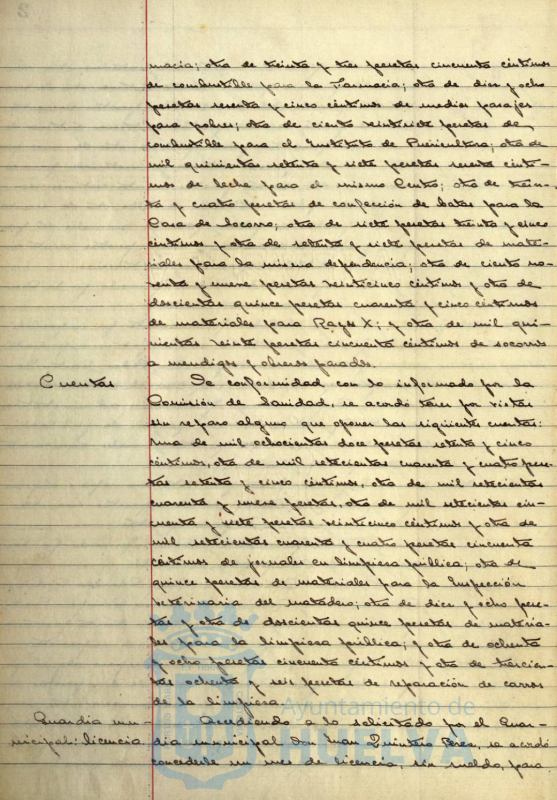 macia; otra de treinta y tres pesetas cincuenta céntimos
de combustible para la Farmacia; otra de diez y ocho
pesetas sesenta y cinco céntimos de medios pasajes
para pobres; otra de ciento veintisiete pesetas de
combustible para el Instituto de Puericultura; otra de
mil quinientas setenta y siete pesetas sesenta cénti-
mos de leche para el mismo Centro; otra de trein-
ta y cuatro pesetas de confección de batas para la
Casa de Socorro; otra de siete pesetas treinta y cinco
céntimos y otra de setenta y siete pesetas de mate-
riales para la misma dependencia; otra de ciento no-
venta y nueve pesetas veinticinco céntimos y otra de
doscientas quince pesetas cuarenta y cinco céntimos
de materiales para Rayos X; y otra de mil qui-
nientas veinte pesetas cincuenta céntimos de socorros
a mendigos y obreros parados.
Cuentas
De conformidad con lo informado por la
Comisión de Sanidad, se acordó tener por vistas
sin reparo alguno que oponer las siguientes cuentas:
Una de mil ochocientas doce pesetas setenta y cinco
céntimos, otra de mil setecientas cuarenta y cuatro pese-
tas setenta y cinco céntimos, otra de mil setecientas
cuarenta y nueve pesetas, otra de mil setecientas cin-
cuenta y siete pesetas veinticinco céntimos y otra de
mil setecientas cuarenta y cuatro pesetas cincuenta
céntimos de jornales en limpieza pública; otra de
quince pesetas de materiales para la Inspección
veterinaria del matadero; otra de diez y ocho pese-
tas y otra de doscientas quince pesetas de materia-
les para la limpieza pública; y otra de ochenta
y ocho pesetas cincuenta céntimos y otra de trescien-
tas ochenta y seis pesetas de reparación de carros
de la limpieza.
Guardia mu-
nicipal: licencia
Accediendo a lo solicitado por el Guar-
dia municipal Don Juan Quintero Pérez, se acordó
concederle un mes de licencia, sin sueldo, para
Ayuntamiento de
HUELVA